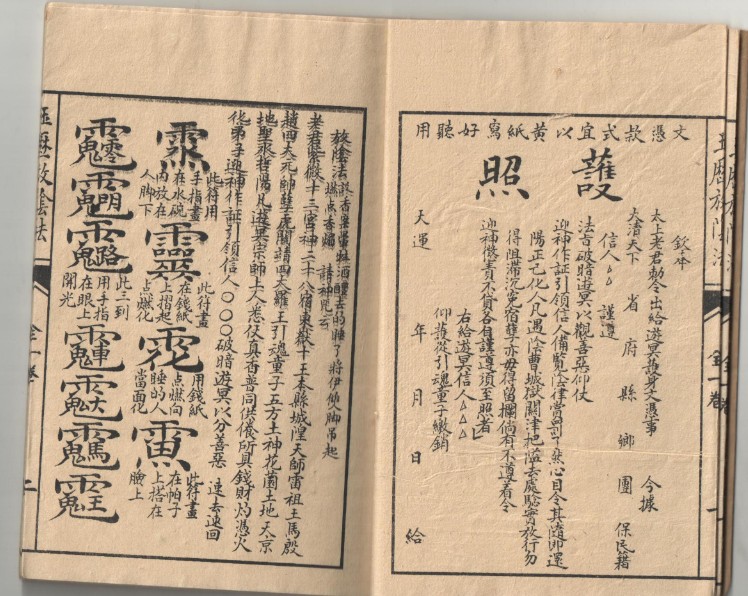 文憑款式宜以黃紙寫好聽用
護照
欽奉
太上老君勅令出給遊冥護身文憑事 今據
大清天下 省 府 縣 鄉 團 保民籍
信人△△ 謹遵
法旨破暗遊冥以觀善惡仰仗
迎神作証引領信人備覽陰律賞罰 心目令其隨即還
陽正己化人凡遇陰曹城獄關津把隘去處驗實放行勿
得阻滯沉冤宿孽亦毋得留攔倘有不遵看令
迎神懲責不貸各自謹遵須至照者
右給遊冥信人△△△
仰護從引魂童子繳銷
天運 年 月 日 給
放陰法 設香案 酒醴去的睡了將伊使脚吊起
燃点香燭 請神咒云
老君紫微十三宮神二十八宿東嶽十王本縣城隍天師雷祖王馬殷
趙四大元帥 虎關靖四大羅王引魂童子五方土神花園土地天京
地聖眾 陽凡遊冥宗師上人悉仗真香普同供養所具錢財灼憑火
化弟子迎神作証引領信人○○○破暗遊冥以分善惡 速去速回
此符用
手指畫
在水碗
內放在
人脚下
此符畫
在錢紙
上摺起
点燃化
用錢紙
点燃向
睡的人
當面化
此符畫
在帕子
上搭在
臉上
此三到
用手指
在眼上
開光
全一卷
二